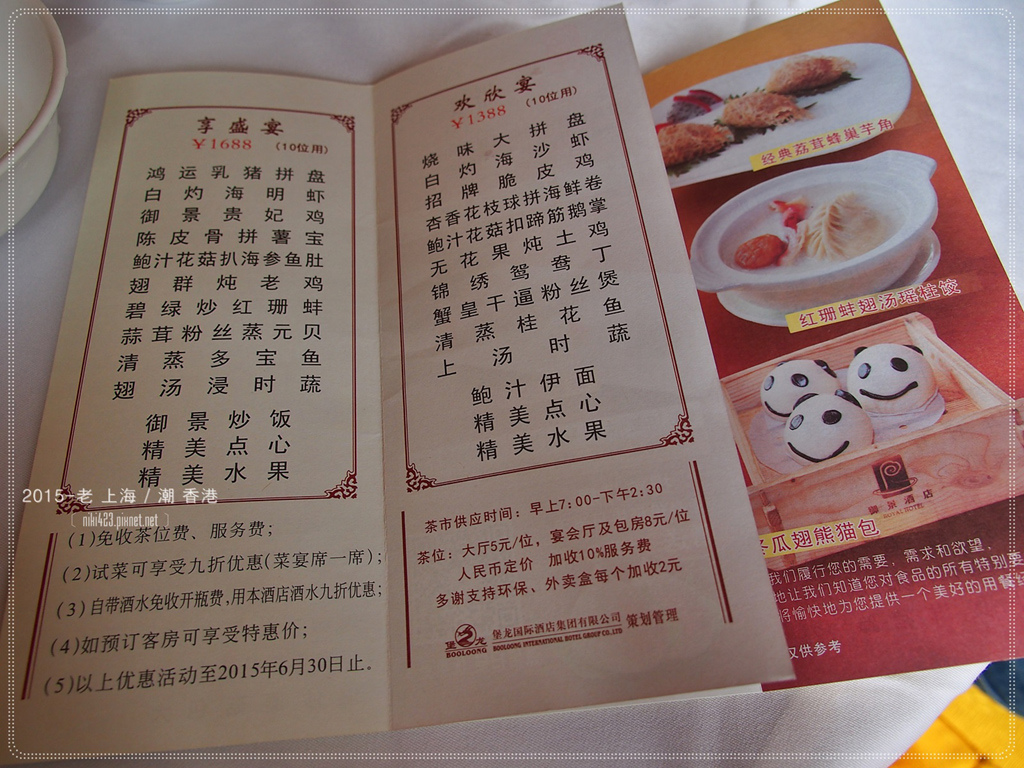 享盛宴
￥1688 (10位用)
鸿运乳猪拼盘
白灼海明虾
御景贵妃鸡
陈皮骨拼薯宝
鲍汁花菇扒海参鱼肚
翅群炖老鸡
碧绿炒红珊蚌
蒜茸粉丝蒸元贝
清蒸多宝鱼
翅汤浸时蔬
御景炒饭
精美点心
精美水果
(1)免收茶位费、服务费;
(2)试菜可享受九折优惠(菜宴席一席);
(3)自带酒水免收开瓶费,用本酒店酒水九折优惠;
(4)如预订客房可享受特惠价;
(5)以上优惠活动至2015年6月30日止。
欢欣宴
￥1388 (10位用)
烧味大拼盘
白灼海沙虾
招牌脆皮鸡
杏香花枝球拼海鲜卷
鲍汁花菇扣蹄筋鹅掌
无花果炖土鸡
锦绣鸳鸯丁
蟹皇干逼粉丝煲
清蒸桂花鱼
上汤时蔬
鲍汁伊面
精美点心
精美水果
茶市供应时间：早上7:00-下午2:30
茶位：大厅5元/位，宴会厅及包房8元/位
人民币定价 加收10%服务费
多谢支持环保、外卖盒每个加收2元
堡龙
BOOLOONG
堡龙国际酒店集团有限公司
BOOLOONG INTERNATIONAL HOTEL GROUP CO.,LTD
策划管理
经典荔茸蜂巢芋角
红珊蚌翅汤瑶柱饺
御景酒店
ROYAL HOTEL
冬瓜翅熊猫包
我们履行您的需要、需求和欲望，
地让我们知道您对食品的所有特别要
将愉快地为您提供一个美好的用餐
仅供参考
2015-老 上海 / 潮 香港
niki423.pixnet.net